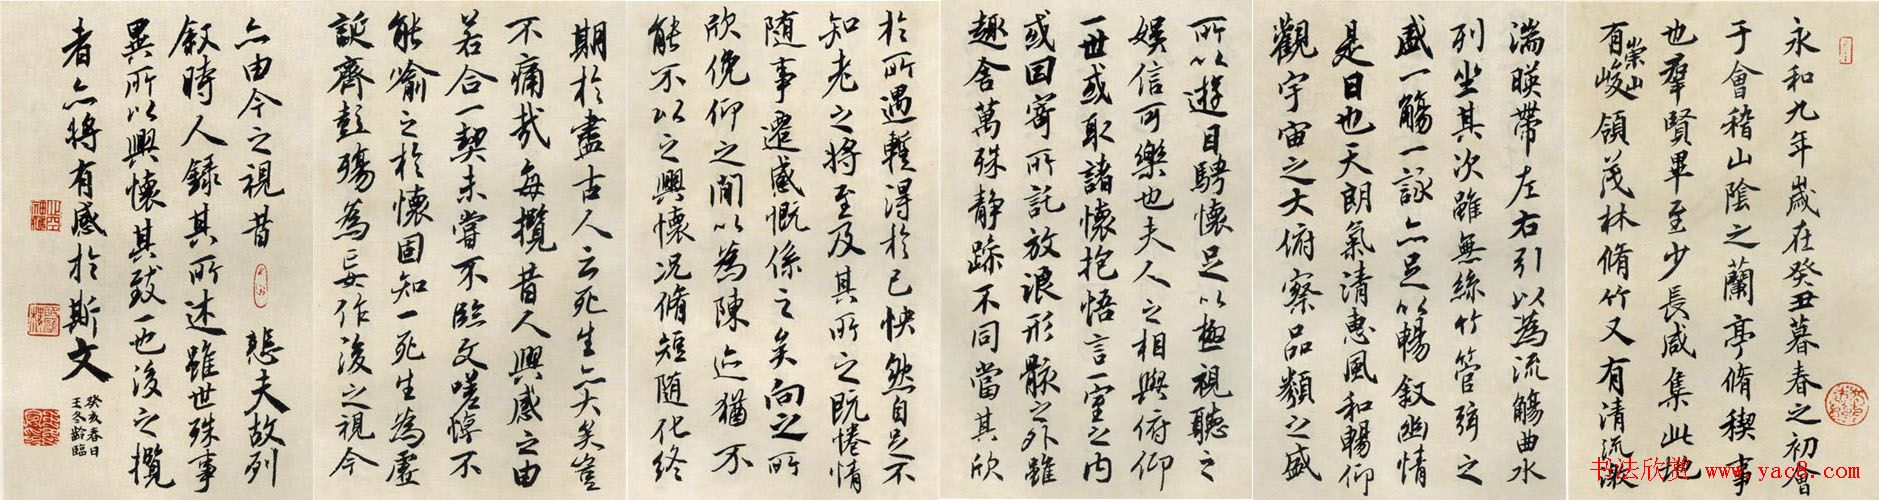 永和九年歲在癸丑暮春之初會
于會稽山陰之蘭亭脩稧事
也羣賢畢至少長咸集此地
有崇山峻領茂林脩竹又有清流激
湍暎帶左右引以為流觴曲水
列坐其次雖無絲竹管弦之
盛一觴一詠亦足以暢敘幽情
是日也天朗氣清惠風和暢仰
觀宇宙之大俯察品類之盛
所以遊目騁懷足以極視聽之
娛信可樂也夫人之相與俯仰
一世或取諸懷抱悟言一室之內
或因寄所託放浪形骸之外雖
趣舍萬殊靜躁不同當其欣
於所遇暫得於己怏然自足不
知老之將至及其所之既惓情
隨事遷感慨係之矣向之所
欣俛仰之間以為陳迹猶不
能不以之興懷況脩短隨化終
期於盡古人云死生亦大矣豈
不痛哉每攬昔人興感之由
若合一契未嘗不臨文嗟悼不
能喻之於懷固知一死生為虛
誕齊彭殤為妄作後之視今
亦由今之視昔 悲夫故列
敘時人錄其所述雖世殊事
異所以興懷其致一也後之攬
者亦將有感於斯文
癸亥春日
王冬齡臨
书法欣赏 www.yac8.com